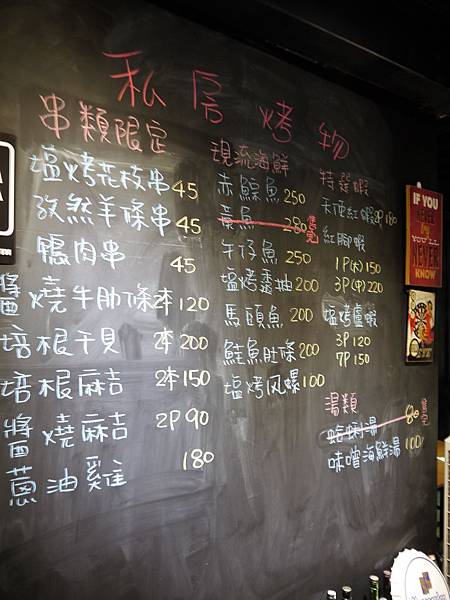 私房烤物
串類限定
塩烤花枝串 45
孜然羊條串 45
鴨肉串 45
醬燒牛肋條 2本 120
培根干貝 2本 200
培根麻吉 2本 150
醬燒麻吉 2P 90
蔥油雞 180
現流海鮮
赤鯮魚 250
黃魚 280
午仔魚 250
塩烤透抽 200
馬頭魚 200
鮭魚肚條 200
塩烤风螺 100
特選蝦
天使紅蝦 2P 180
紅腳蝦
1P(大) 150
3P(中) 220
塩烤盧蝦
3P 120
7P 150
湯類
蛤蜊湯 80
味噌海鮮湯 100
IF YOU
NEVER
try
YOU'LL
NEVER
KNOW